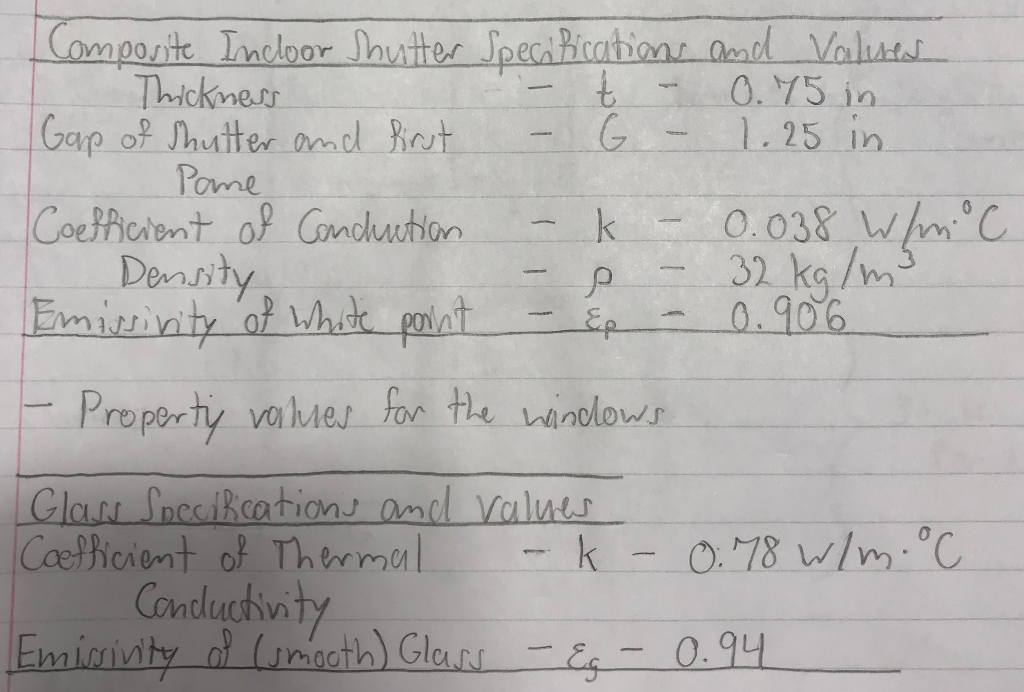 Composite Indoor Shutter Specifications and Values
Thickness - t - 0.75 in
Gap of Shutter and first - G - 1.25 in
Pane
Coefficient of Conduction - k - 0.038 W/m·°C
Density - ρ - 32 kg/m³
Emissivity of White paint - εp - 0.906
- Property values for the windows
Glass Specifications and Values
Coefficient of Thermal - k - 0.78 W/m·°C
Conductivity
Emissivity of (smooth) Glass - εg - 0.94